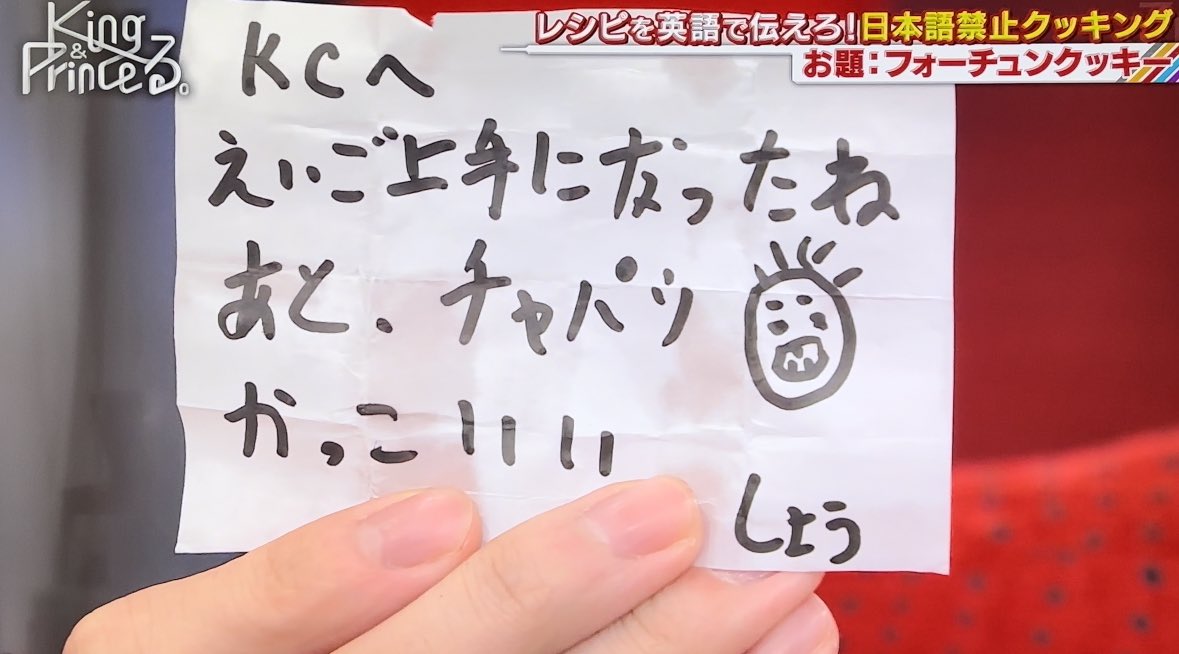 King
&
Princeる。
レシピを英語で伝えろ!日本語禁止クッキング
お題:フォーチュンクッキー
KCへ
えいご上手になったね
あと、チャパツ
かっこいい
しょう